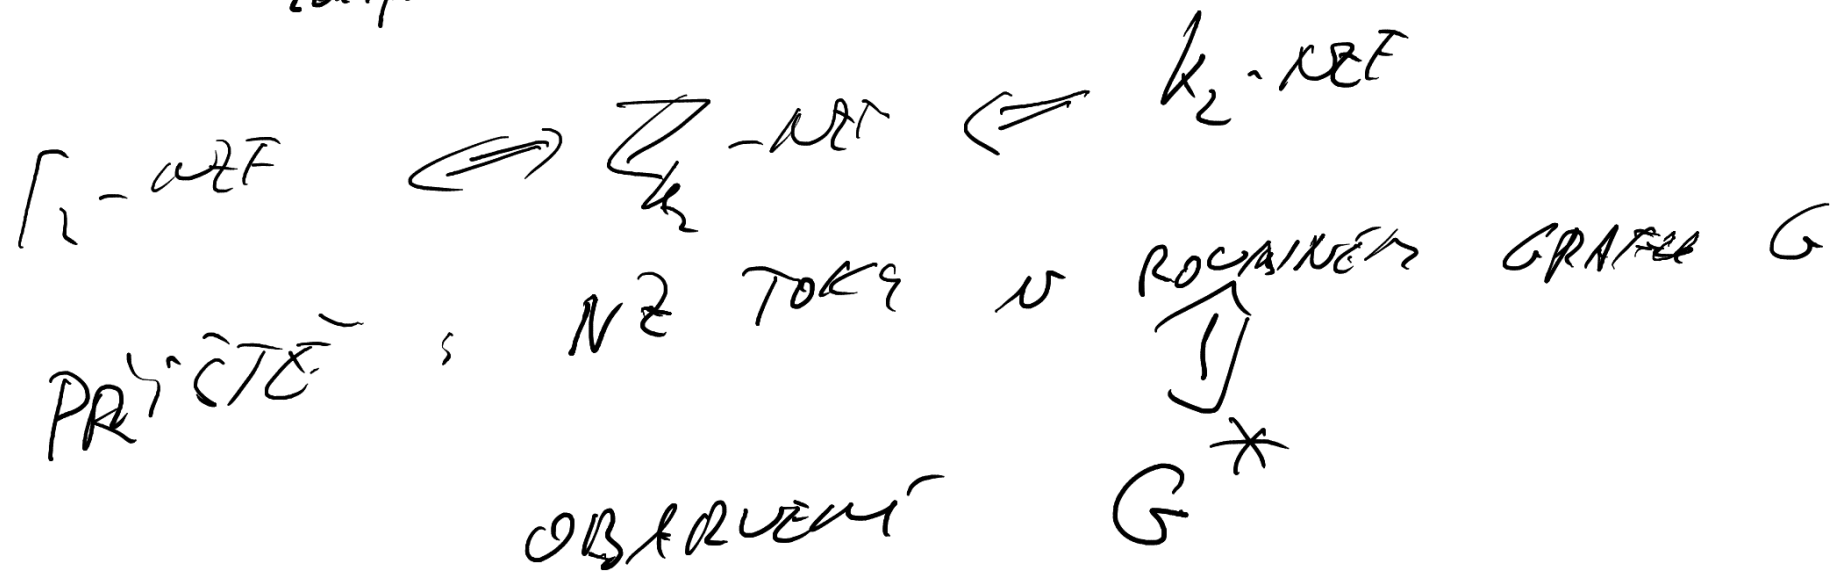 Γ₂-NZF ⟺ ℤ_{k₂}-NZF ⟸ k₂-NZF
PŘÍŠTĚ: NZ TOKY V ROVINNÉM GRAFU G
⇕
OBARVENÍ G*